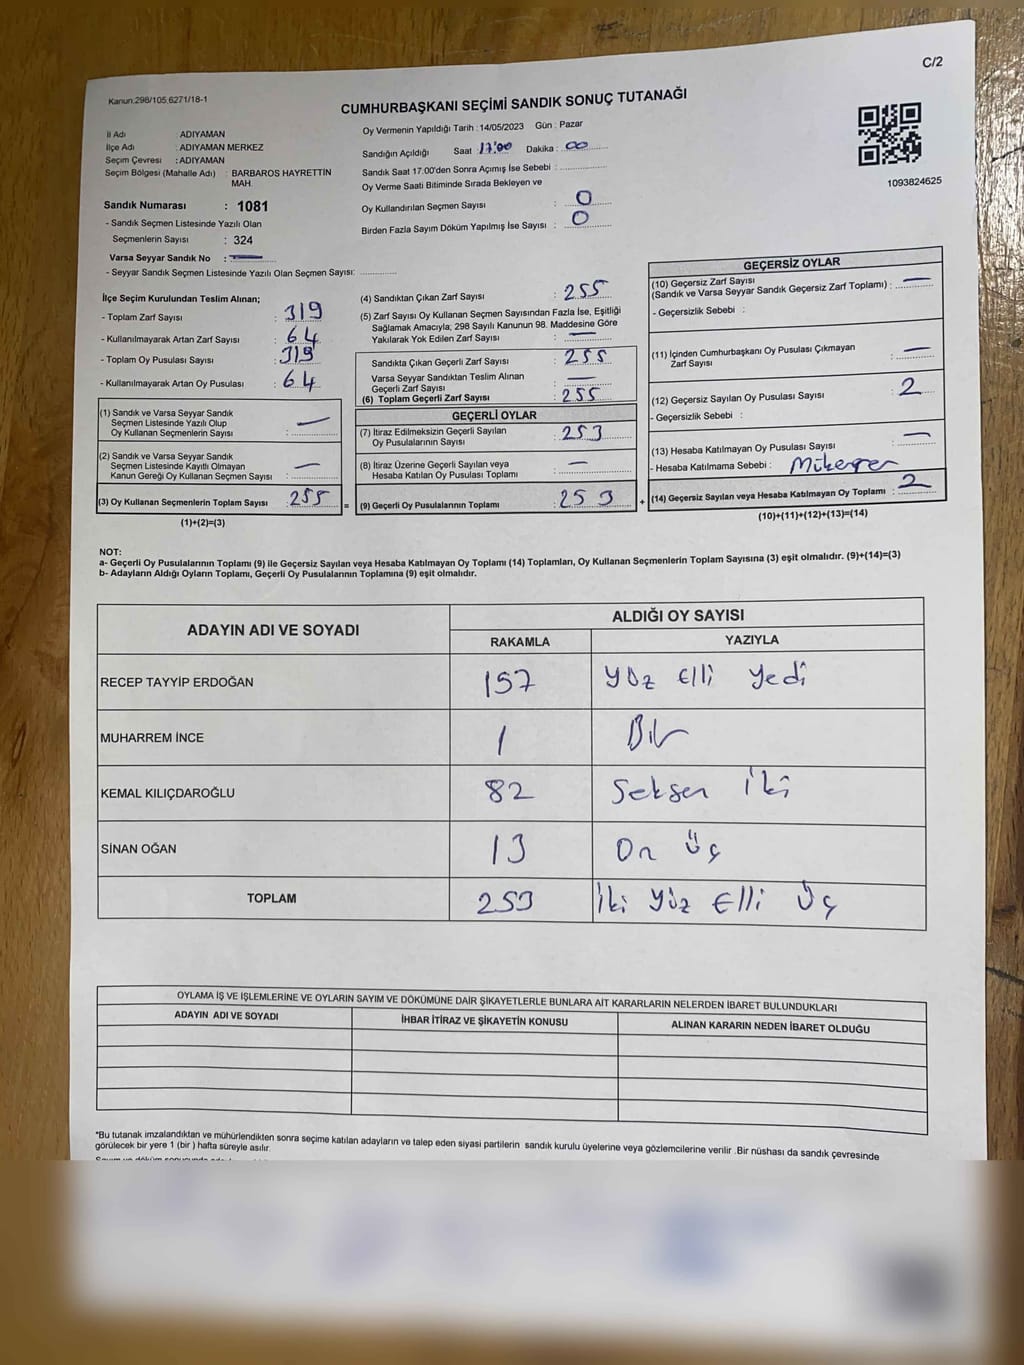 C/2
Kanun:298/105,6271/18-1
CUMHURBAŞKANI SEÇİMİ SANDIK SONUÇ TUTANAĞI
İl Adı : ADIYAMAN
İlçe Adı : ADIYAMAN MERKEZ
Seçim Çevresi : ADIYAMAN
Seçim Bölgesi (Mahalle Adı) : BARBAROS HAYRETTİN
MAH.
Sandık Numarası : 1081
- Sandık Seçmen Listesinde Yazılı Olan
Seçmenlerin Sayısı : 324
Varsa Seyyar Sandık No :
- Seyyar Sandık Seçmen Listesinde Yazılı Olan Seçmen Sayısı:
Oy Vermenin Yapıldığı Tarih : 14/05/2023 Gün : Pazar
Sandığın Açıldığı Saat : 17:00 Dakika : 00
Sandık Saat 17.00'den Sonra Açımış İse Sebebi :
Oy Verme Saati Bitiminde Sırada Bekleyen ve
Oy Kullandırılan Seçmen Sayısı : 0
Birden Fazla Sayım Döküm Yapılmış İse Sayısı : 0
1093824625
İlçe Seçim Kurulundan Teslim Alınan;
- Toplam Zarf Sayısı : 319
- Kullanılmayarak Artan Zarf Sayısı : 64
- Toplam Oy Pusulası Sayısı : 319
- Kullanılmayarak Artan Oy Pusulası : 64
(1) Sandık ve Varsa Seyyar Sandık
Seçmen Listesinde Yazılı Olup
Oy Kullanan Seçmenlerin Sayısı : —
(2) Sandık ve Varsa Seyyar Sandık
Seçmen Listesinde Kayıtlı Olmayan
Kanun Gereği Oy Kullanan Seçmen Sayısı : —
(3) Oy Kullanan Seçmenlerin Toplam Sayısı : 255 =
(1)+(2)=(3)
(4) Sandıktan Çıkan Zarf Sayısı : 255
(5) Zarf Sayısı Oy Kullanan Seçmen Sayısından Fazla İse, Eşitliği
Sağlamak Amacıyla; 298 Sayılı Kanunun 98. Maddesine Göre
Yakılarak Yok Edilen Zarf Sayısı : —
Sandıkta Çıkan Geçerli Zarf Sayısı : 255
Varsa Seyyar Sandıktan Teslim Alınan
Geçerli Zarf Sayısı : —
(6) Toplam Geçerli Zarf Sayısı : 255
GEÇERLİ OYLAR
(7) İtiraz Edilmeksizin Geçerli Sayılan
Oy Pusulalarının Sayısı : 253
(8) İtiraz Üzerine Geçerli Sayılan veya
Hesaba Katılan Oy Pusulası Toplamı : —
(9) Geçerli Oy Pusulalarının Toplamı : 253 +
GEÇERSİZ OYLAR
(10) Geçersiz Zarf Sayısı
(Sandık ve Varsa Seyyar Sandık Geçersiz Zarf Toplamı) : —
- Geçersizlik Sebebi :
(11) İçinden Cumhurbaşkanı Oy Pusulası Çıkmayan
Zarf Sayısı : —
(12) Geçersiz Sayılan Oy Pusulası Sayısı : 2
- Geçersizlik Sebebi :
(13) Hesaba Katılmayan Oy Pusulası Sayısı : —
- Hesaba Katılmama Sebebi :
(14) Geçersiz Sayılan veya Hesaba Katılmayan Oy Toplamı : 2
(10)+(11)+(12)+(13)=(14)
NOT:
a- Geçerli Oy Pusulalarının Toplamı (9) ile Geçersiz Sayılan veya Hesaba Katılmayan Oy Toplamı (14) Toplamları, Oy Kullanan Seçmenlerin Toplam Sayısına (3) eşit olmalıdır. (9)+(14)=(3)
b- Adayların Aldığı Oyların Toplamı, Geçerli Oy Pusulalarının Toplamına (9) eşit olmalıdır.
ADAYIN ADI VE SOYADI
ALDIĞI OY SAYISI
RAKAMLA YAZIYLA
RECEP TAYYİP ERDOĞAN 157 Yüz Elli Yedi
MUHARREM İNCE 1 Bir
KEMAL KILIÇDAROĞLU 82 Seksen İki
SİNAN OĞAN 13 On Üç
TOPLAM 253 İki Yüz Elli Üç
OYLAMA İŞ VE İŞLEMLERİNE VE OYLARIN SAYIM VE DÖKÜMÜNE DAİR ŞİKAYETLERLE BUNLARA AİT KARARLARIN NELERDEN İBARET BULUNDUKLARI
ADAYIN ADI VE SOYADI İHBAR İTİRAZ VE ŞİKAYETİN KONUSU ALINAN KARARIN NEDEN İBARET OLDUĞU
*Bu tutanak imzalandıktan ve mühürlendikten sonra seçime katılan adayların ve talep eden siyasi partilerin sandık kurulu üyelerine veya gözlemcilerine verilir .Bir nüshası da sandık çevresinde
görülecek bir yere 1 (bir ) hafta süreyle asılır.